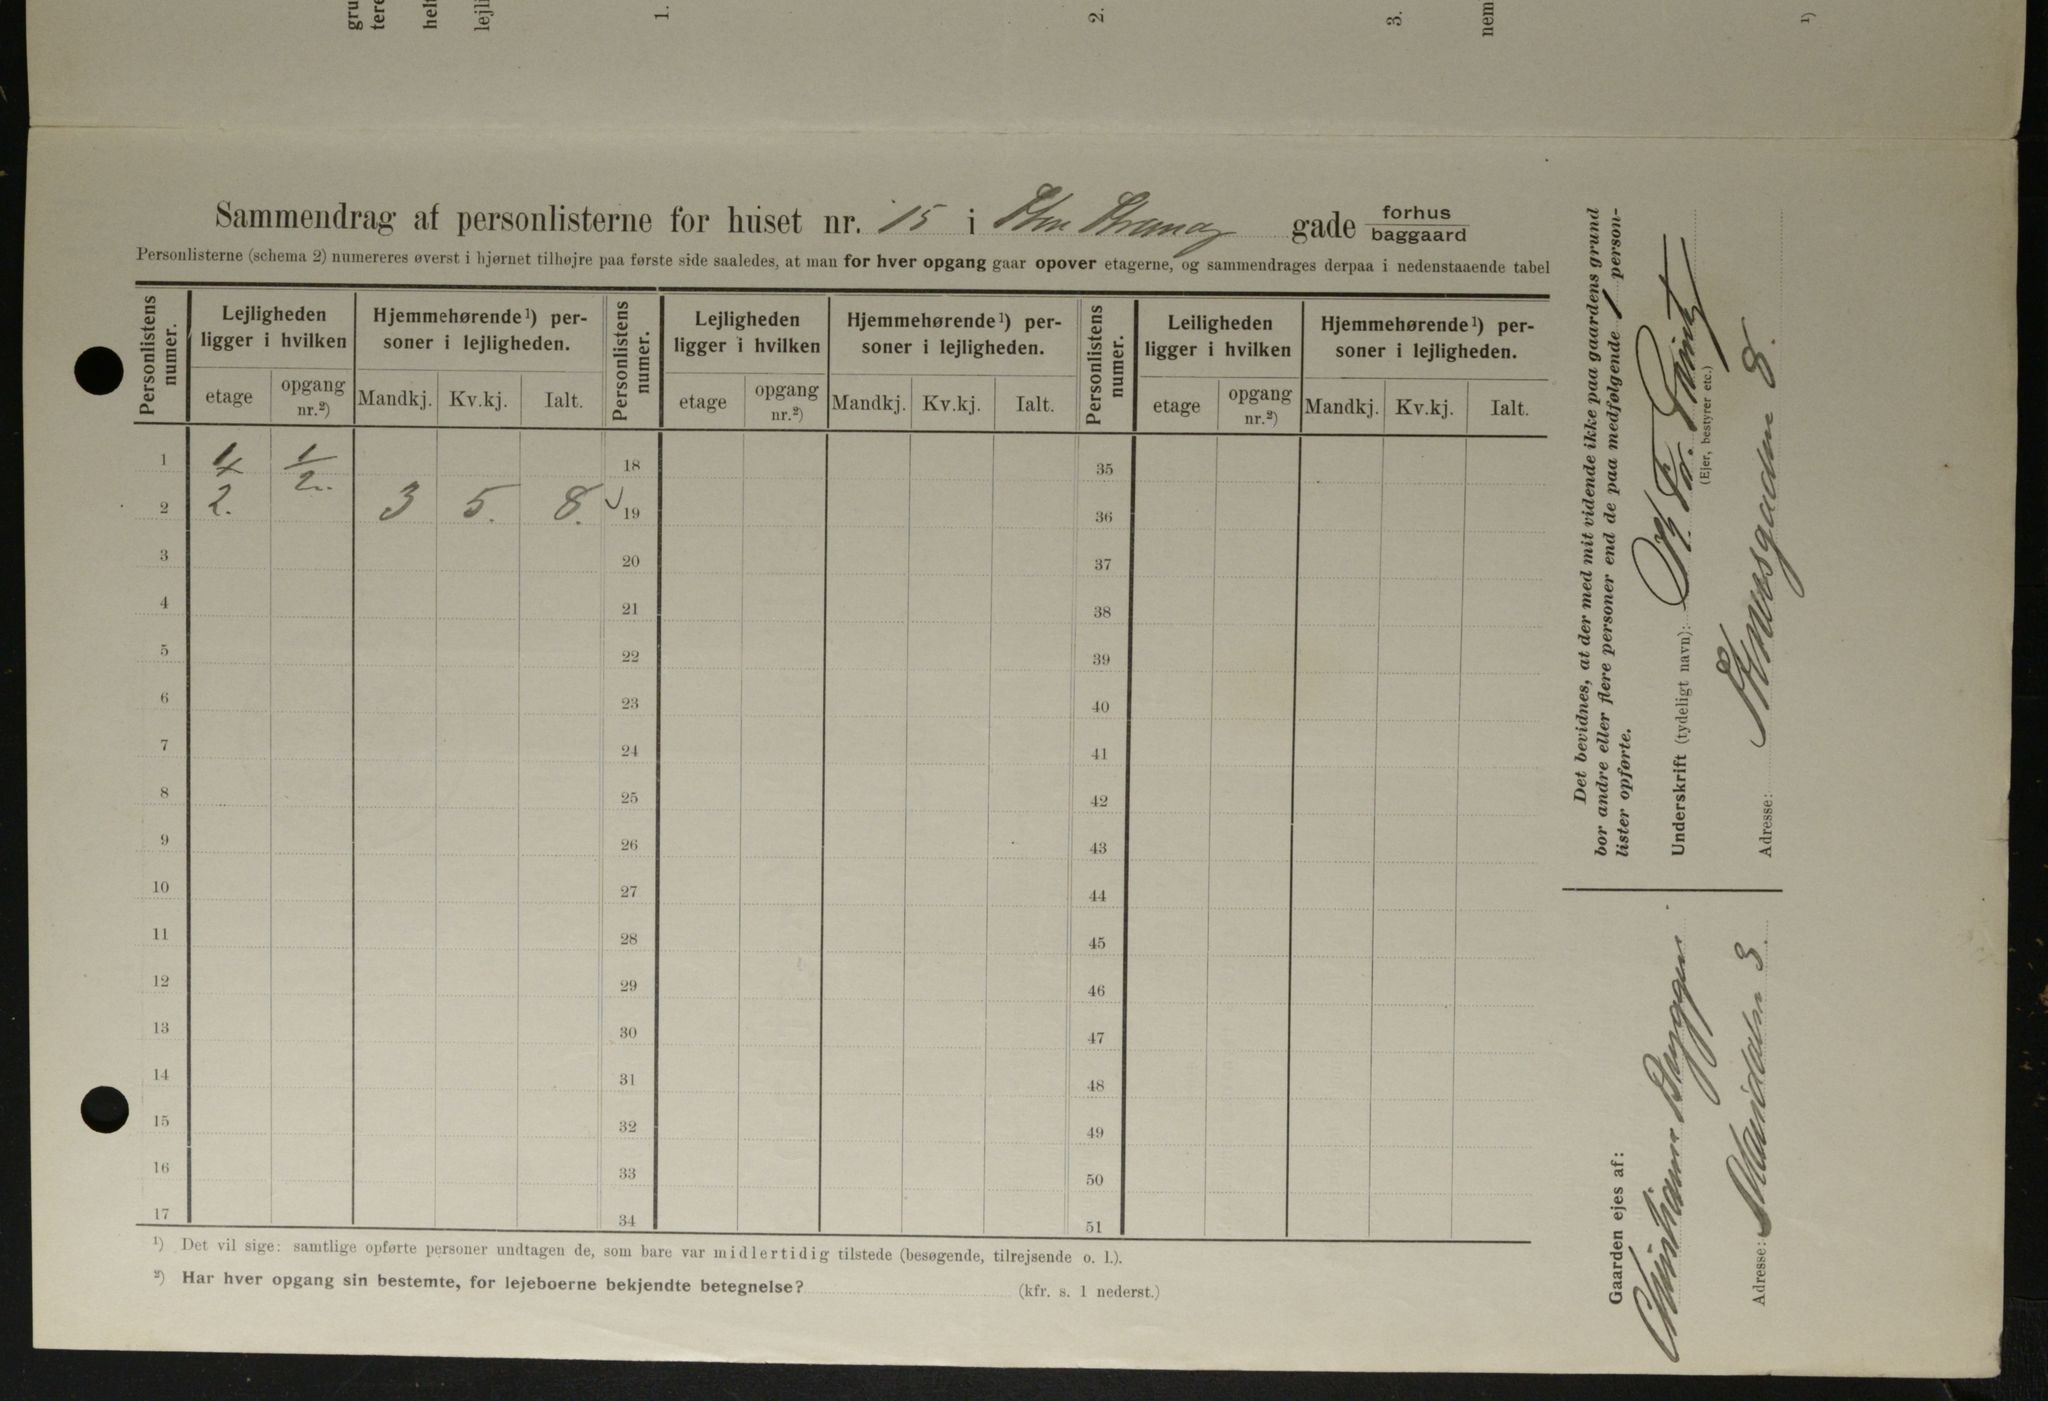 gru
tere
heh
lejli
1.
2.
3.
nem
1)
Sammendrag af personlisterne for huset nr. 15 i gade forhus
baggaard
Personlisterne (schema 2) numereres øverst i hjørnet tilhøjre paa første side saaledes, at man for hver opgang gaar opover etagerne, og sammendrages derpaa i nedenstaaende tabel
Personlistens numer. Lejligheden ligger i hvilken Hjemmehørende¹) personer i lejligheden. Personlistens numer. Lejligheden ligger i hvilken Hjemmehørende¹) personer i lejligheden. Personlistens numer. Leiligheden ligger i hvilken Hjemmehørende¹) personer i lejligheden.
etage opgang nr.²) Mandkj. Kv.kj. Ialt. etage opgang nr.²) Mandkj. Kv.kj. Ialt. etage opgang nr.²) Mandkj. Kv.kj. Ialt.
1 1/2 18 35
2 2. 3 5. 8. 19 36
3 20 37
4 21 38
5 22 39
6 23 40
7 24 41
8 25 42
9 26 43
10 27 44
11 28 45
12 29 46
13 30 47
14 31 48
15 32 49
16 33 50
17 34 51
¹) Det vil sige: samtlige opførte personer undtagen de, som bare var midlertidig tilstede (besøgende, tilrejsende o. l.).
²) Har hver opgang sin bestemte, for lejeboerne bekjendte betegnelse? (kfr. s. 1 nederst.)
Gaarden ejes af:
Adresse: 3
Det bevidnes, at der med mit vidende ikke paa gaardens grund
bor andre eller flere personer end de paa medfølgende 1 person-
lister opførte.
Underskrift (tydeligt navn):
(Ejer, bestyrer etc.)
Adresse: 8.